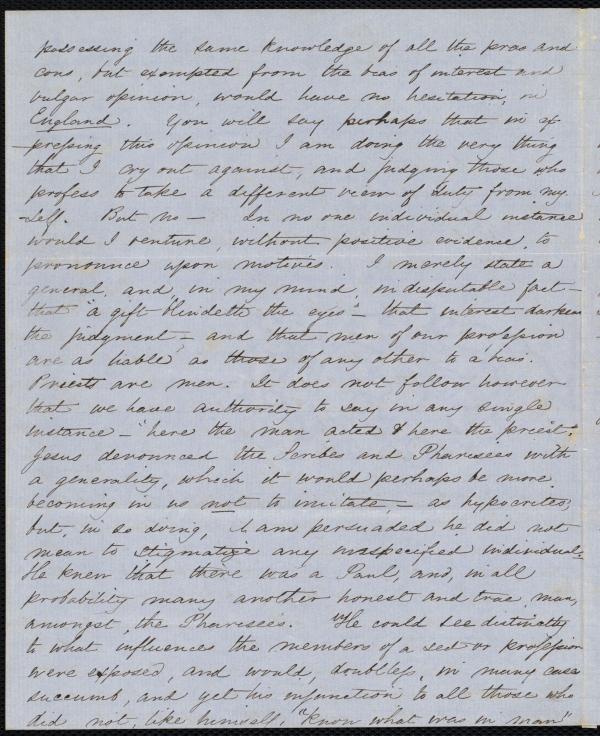 possessing the same knowledge of all the pros and
cons, but exempted from the bias of interest and
vulgar opinion, would have no hesitation, in
England. You will say perhaps that in ex-
-pressing this opinion I am doing the very thing
that I cry out against, and judging those who
profess to take a different view of duty from my-
-self. But no — In no one individual instance
would I venture, without positive evidence, to
pronounce upon motives. I merely state a
general, and in my mind, indisputable fact —
that "a gift blindeth the eyes" — that interest darkens
the judgment, — and that men of our profession
are as liable as those of any other to a bias.
Priests are men. It does not follow however
that we have authority to say in any single
instance — "here the man acted & here the priest."
Jesus denounced the Scribes and Pharisees with
a generality, which it would perhaps be more
becoming in us not to imitate, — as hypocrites;
but, in so doing, I am persuaded he did not
mean to stigmatize any unspecified individual.
He knew that there was a Paul, and, in all
probability many another honest and true man,
amongst the Pharisees. He could see distinctly
to what influences the members of a sect or profession
were exposed, and would, doubtless, in many cases
succumb, and yet his injunction to all those who
did not, like himself, "know what was in man"